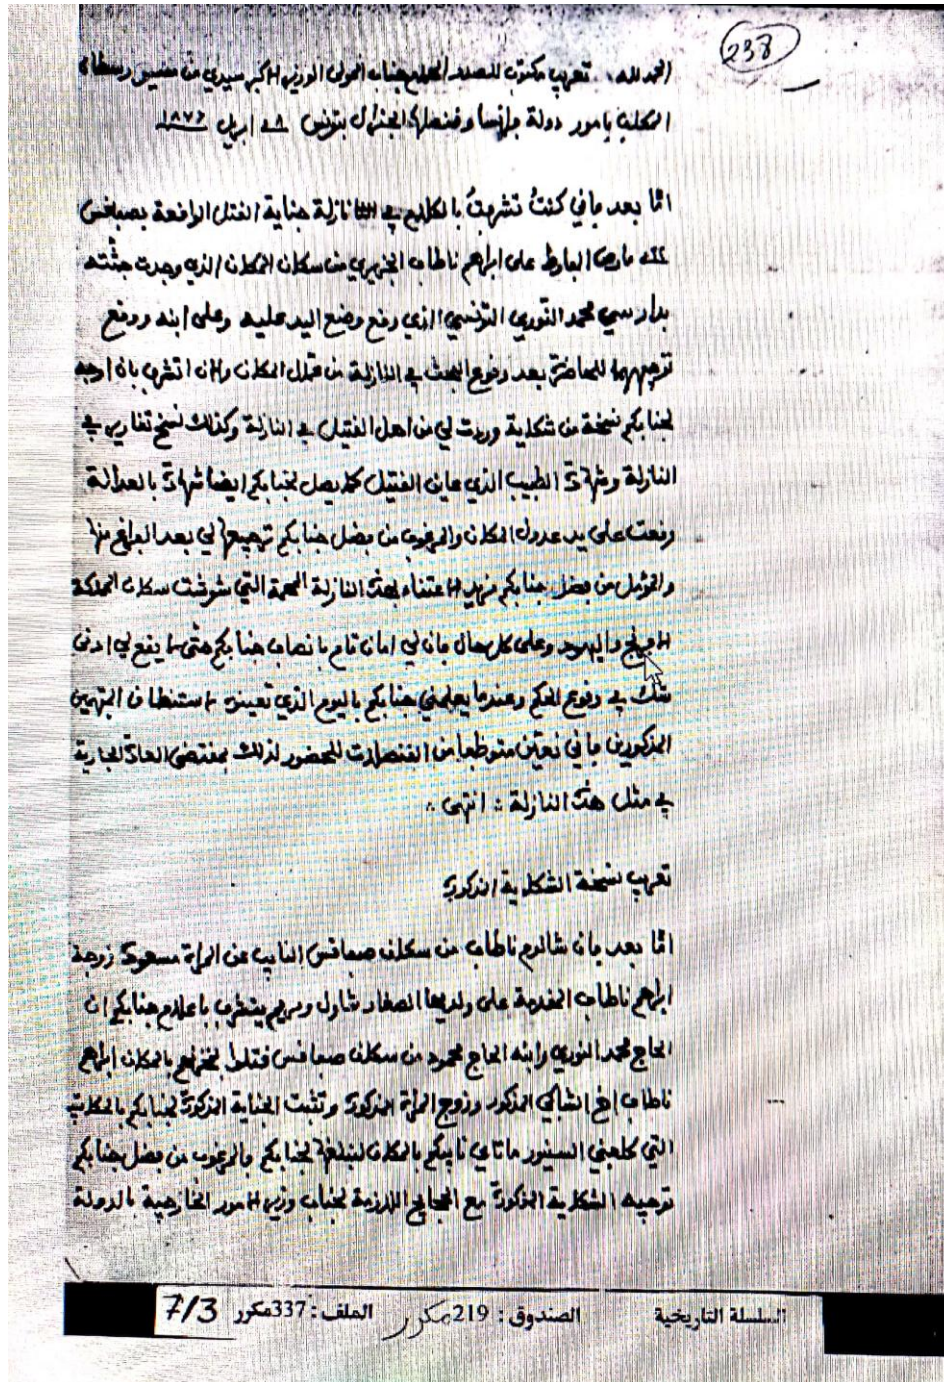 238
الحمد لله، تعريب مكتوب للصدر الهمام جناب المولى الوزير الاكبر سيدي من مسيس رسطان
المكلف بامور دولة فرانسا وقنصلها الجنرال بتونس ابريل ١٨٧٦
امّا بعد فاني كنتُ تشرفتُ بالكلام في نازلة جناية القتل الواقعة بصفاقس
مارس الفارط على ابراهم ناطاف الجزيري من سكان المكان الذي وجدت جثّته
بدار سي محمد النوري التونسي الذي وقع وضع اليد عليه وعلى ابنه ووقع
توجيههما للحاضرة بعد وقوع البحث في النازلة من عمّال المكان والان اتشرف بان اوجه
لجنابكم نسخة من شكاية وردت لي من اهل القتيل في النازلة وكذلك نسخ تقارير في
النازلة وشهادة الطبيب الذي عاين القتيل كما يصل لجنابكم ايضا شهادة بالعدالة
وقعت على يد عدول المكان والمرغوب من فضل جنابكم ترجيعها لي بعد الفراغ منها
والمؤمل من فضل جنابكم مزيد الاعتناء بهذه النازلة المهمة التي شوشت سكان المملكة
الافرنج واليهود وعلى كل حال فان لي امان تام بانصاف جنابكم حتى لا يقع لي ادنى
شك في وقوع الحكم وعندما يعلمني جنابكم باليوم الذي تعينوه لاستنطاق المتهمين
المذكورين فاني نعيّن متوظفا من القنصلات للحضور لذلك بمقتضى العادة الجارية
في مثل هذه النازلة : انتهى .
تعريب نسخة الشكاية المذكورة
امّا بعد فان شالوم ناطاف من سكان صفاقس النايب عن المراة مسعودة زوجة
ابراهم ناطاف المقدمة على ولديها الصغار شاول ومريم يتشرف باعلام جنابكم ان
الحاج محمد النوري وابنه الحاج محمود من سكان صفاقس قتلوا بمخزنهم بالمكان ابراهم
ناطاف اخ الشاكي المذكور وزوج المراة المذكورة وتثبت الجناية المذكورة لجنابكم بالمكاتيب
التي كلفني السنيور ماتاي نايبكم بالمكان لنبلغها لجنابكم والمرغوب من فضل جنابكم
توجيه الشكاية المذكورة مع الحجايج اللازمة لجناب وزير الامور الخارجية بالدولة
السلسلة التاريخية الصندوق : 219 مكرر الملف : 337 مكرر 7/3